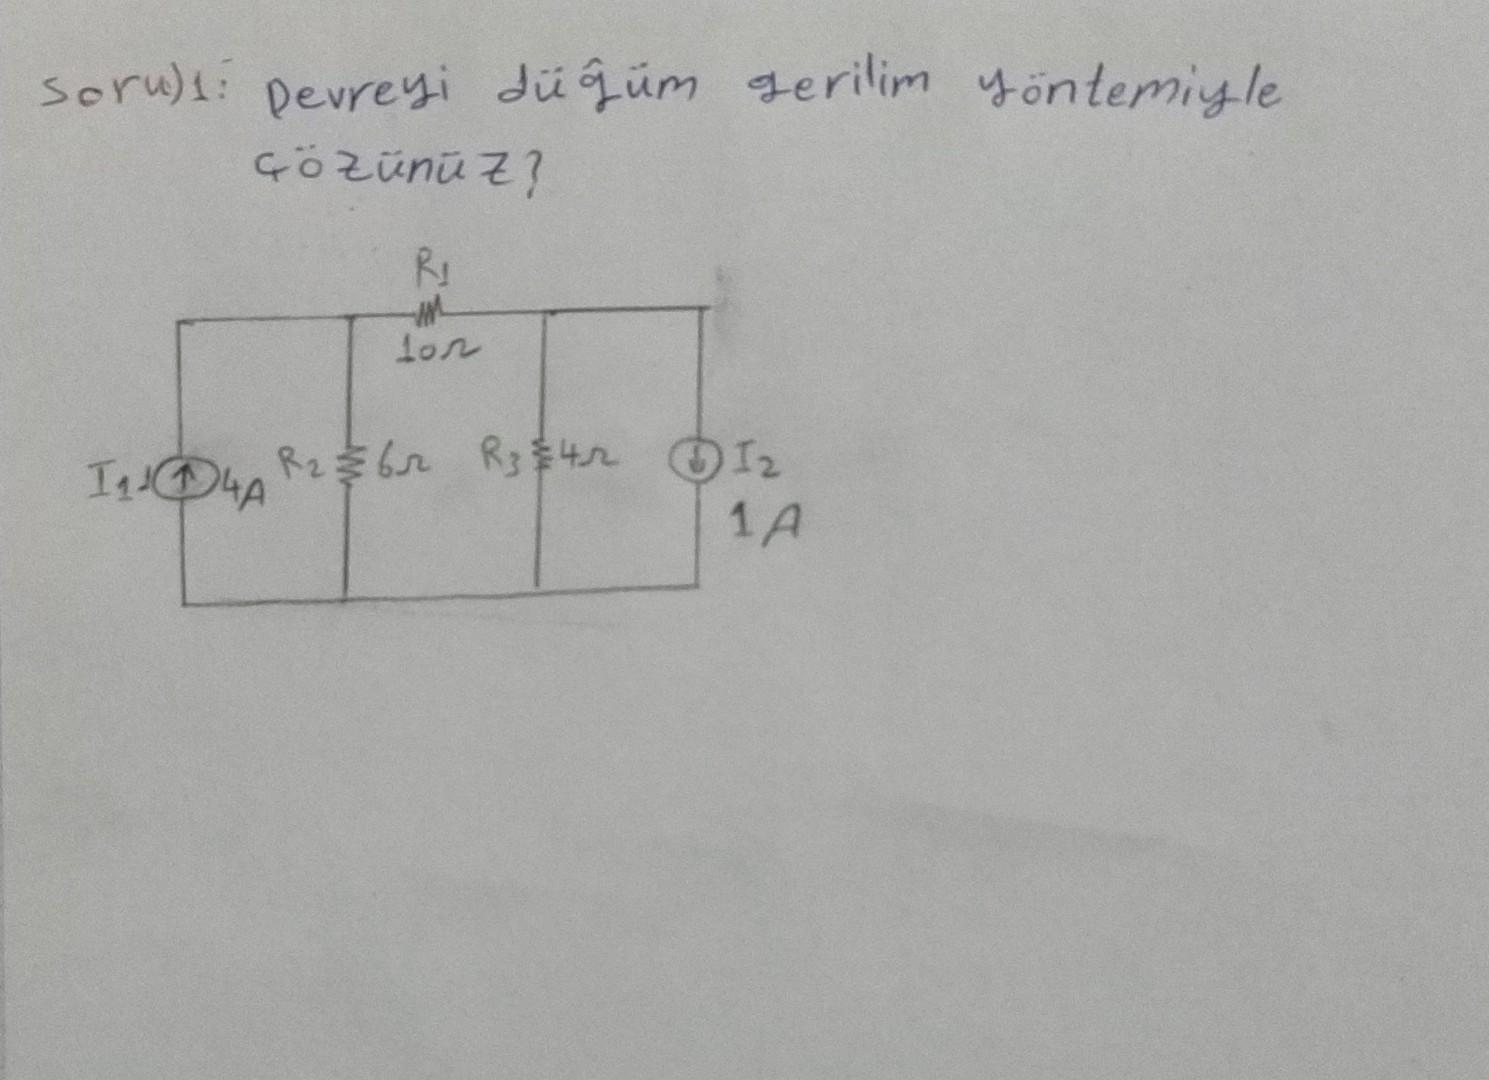 Soru)1: Devreyi düğüm gerilim yöntemiyle
çözünüz?
R1
10Ω
I1 4A R2 6Ω R3 4Ω I2
1A